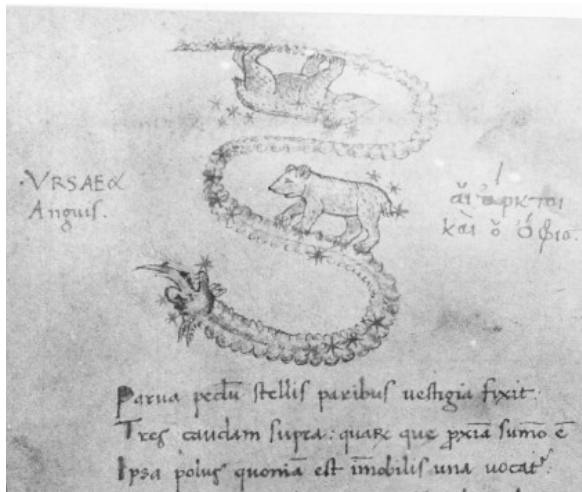 ·VRSAE &
Anguis.
ἄι ἄρκτοι
κὰι ὁ ὄφισ
Parua pedū stellis paribus uestigia fixit:
Tres caudam supra: quarꝫ que ꝓxiā sumo ē
Ipsa polus quoniā est īmobilis una uocat᷑: